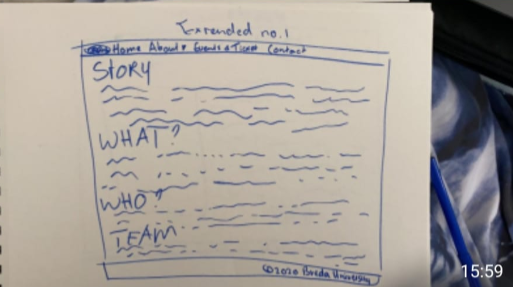 Extended no.1
Home About Events & Ticket Contact
STORY
WHAT?
WHO?
TEAM
©2020 Breda University
15:59